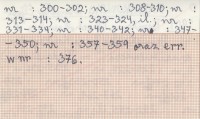 nr : 300-302; nr : 308-310; nr :
313-314; nr : 323-324, il.; nr :
331-334; nr : 340-342; nr : 347-
-350; nr : 357-359 oraz err.
w nr : 376.